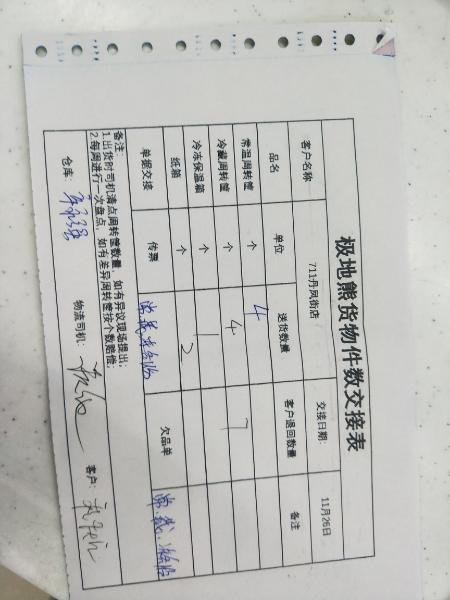 极地熊货物件数交接表
客户名称 711丹凤街店 交接日期: 11月26日
品名 单位 送货数量 客户退回数量 备注
常温周转筐 个 4
冷藏周转筐 个 4 7
冷冻保温箱 个 1
纸箱 个 2
单据交接 传票 欠品单
备注:
1.出货时司机清点周转筐数量,如有异议现场提出;
2.每周进行一次盘点,如有差异周转筐按个数赔偿;
仓库: 物流司机: 客户: